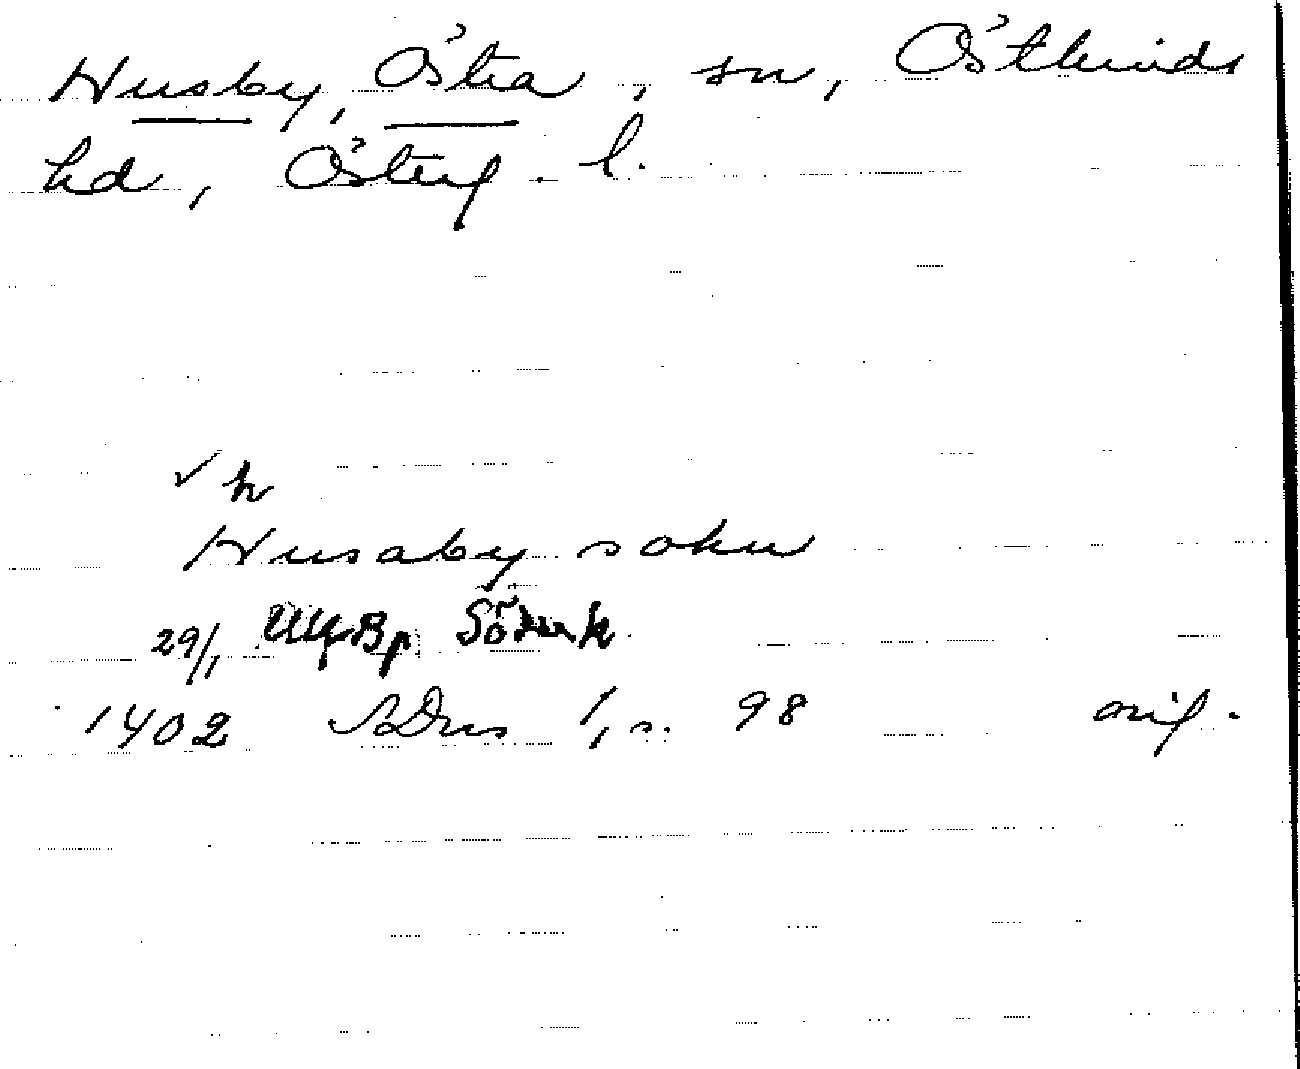 Husby, Östra, sn, Östkinds
hd, Österg. l.
✓ h
Husaby sokn
29/1 UlfBp Söderk
1402 SDns 1, s. 98 orig.